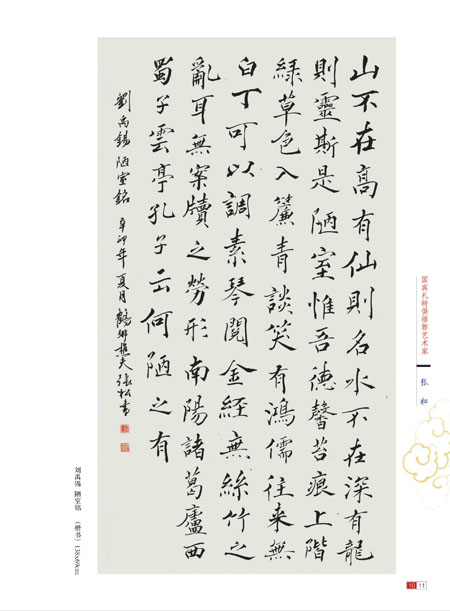 山不在高有仙則名水不在深有龍
則靈斯是陋室惟吾德馨苔痕上階
綠草色入簾青談笑有鴻儒往来無
白丁可以調素琴閱金経無絲竹之
亂耳無案牘之勞形南陽諸葛廬西
蜀子雲亭孔子云何陋之有
劉禹錫陋室銘 辛卯年夏月鶴鄉樵夫張松書
国宾礼特供推荐艺术家
张松
刘禹锡 陋室铭 （楷书）138x69cm
10 11